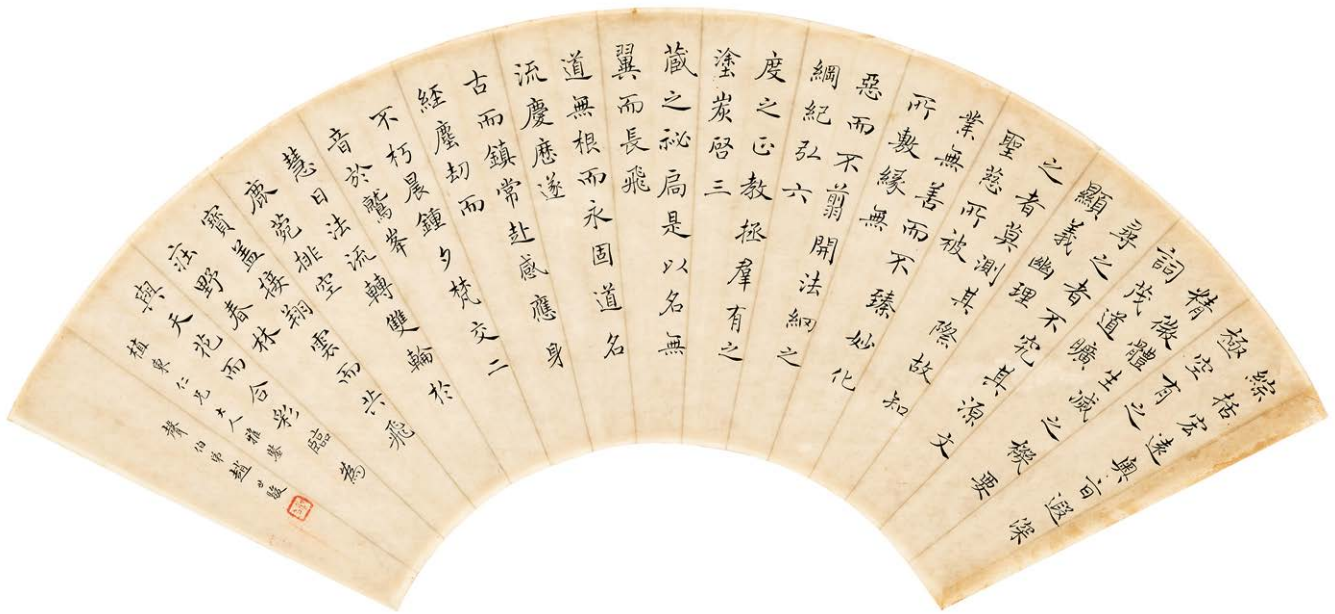 綜括宏遠奧旨遐深
極空有之
精微體生滅之機要
詞茂道曠
尋之者不究其源文
顯義幽理
之者莫測其際故知
聖慈所被
業無善而不臻妙化
所敷緣無
惡而不翦開法網之
綱紀弘六
度之正教拯羣有之
塗炭啓三
藏之祕扃是以名無
翼而長飛
道無根而永固道名
流慶歷遂
古而鎮常赴感應身
経塵劫而
不朽晨鍾夕梵交二
音於鷲峯
慧日法流轉雙輪於
鹿菀排空
寶盖接翔雲而共飛
莊野春林
與天花而合彩臨為
植東仁兄大人雅鑒
聲伯弟趙世駿